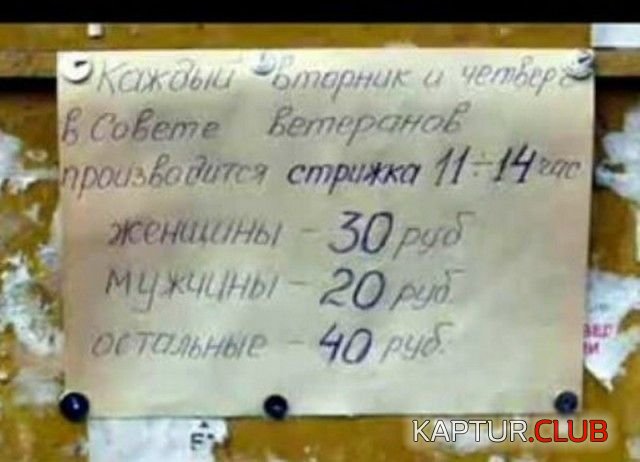 Каждый вторник и четверг
в Совете ветеранов
производится стрижка 11÷14 час
женщины - 30 руб
мужчины - 20 руб.
остальные - 40 руб.
KAPTUR.CLUB